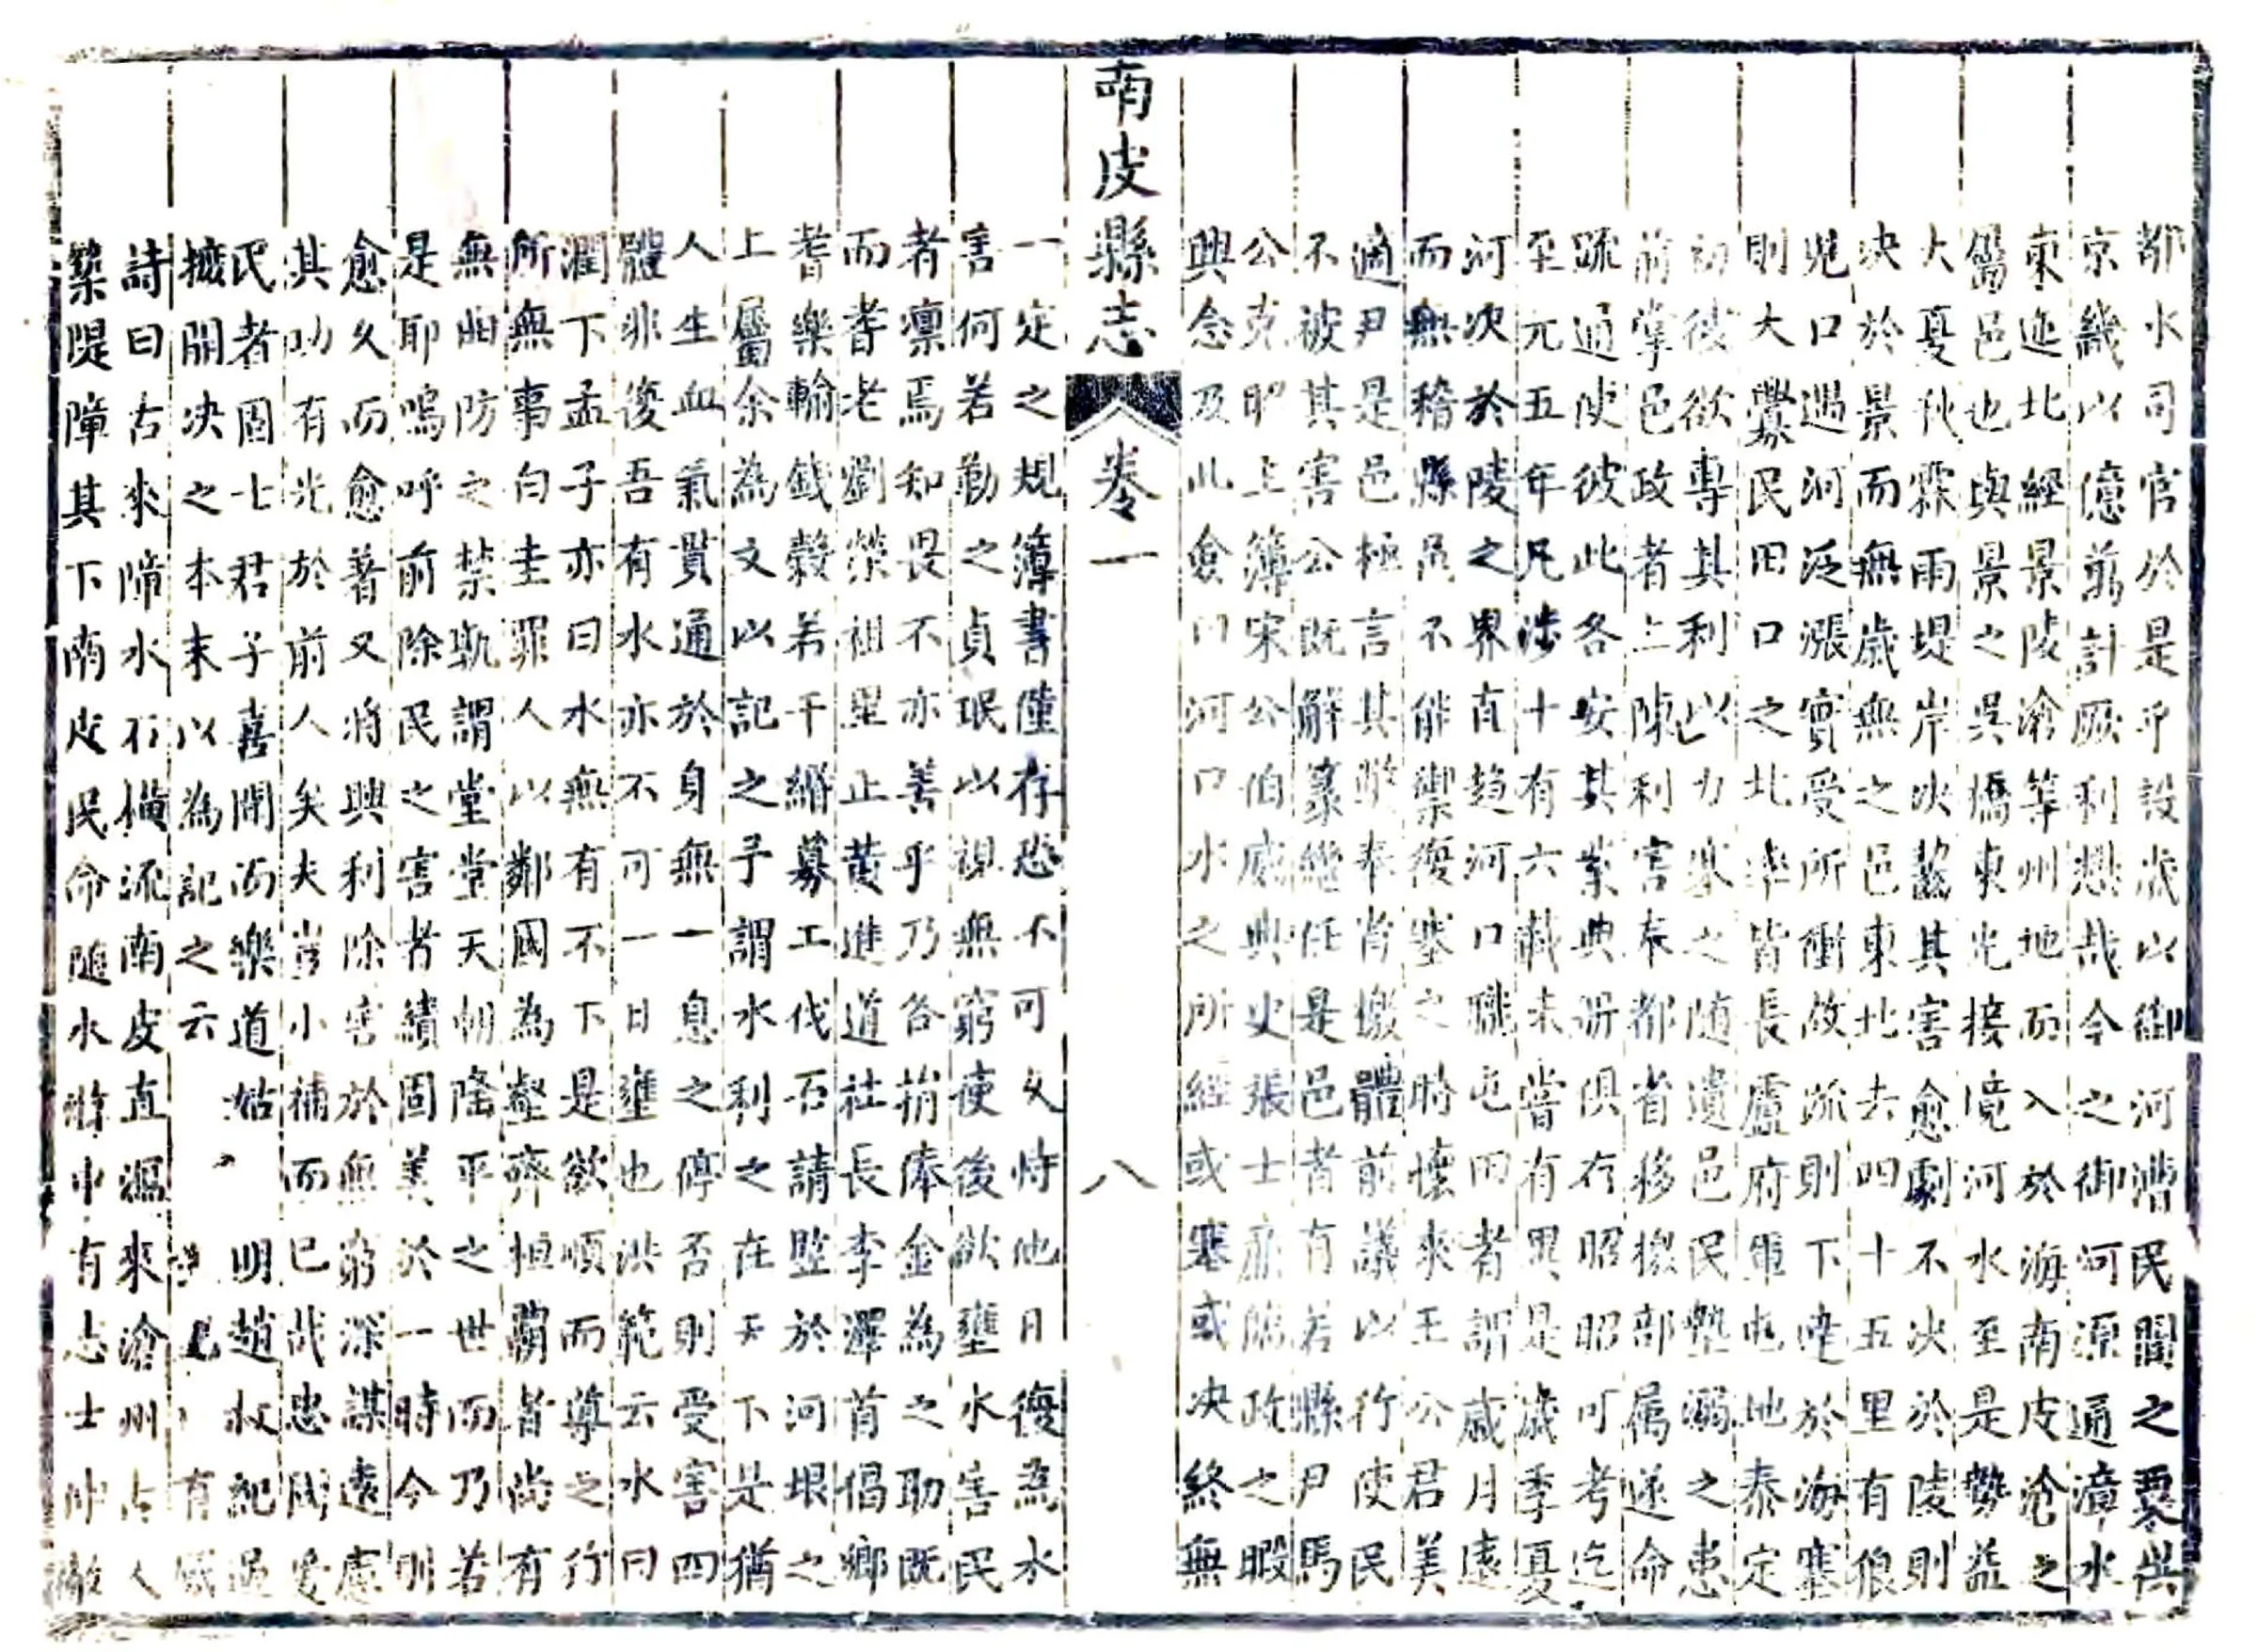 都水司官於是乎設歲以御河漕民間之粟供
京畿以億萬計厥利懋哉今之御河源通漳水
東迤北經景陵滄等州地而入於海南皮滄之
屬邑也與景之吳橋東光接境河水至是勢益
大夏秋霖雨堤岸決齧其害愈劇不決於陵則
決於景而無歲無之邑東北去四十五里有狼
兒口遇河泛漲實受所衝故疏則下達於海塞
則大釁民田口之北率皆長蘆府軍屯地泰定
初彼欲專其利以力塞之随遺邑民墊溺之患
前掌邑政者上陳利害奈都省移樞部属遂命
疏通使彼此各安其業典冊俱存昭昭可考迄
至元五年凡涉十有六載未嘗有異是歲季夏
河決於陵之界直趨河口職屯田者謂歲月遠
而無稽縣邑不能禦復塞之時懷來王公君美
適尹是邑極言其弊奉省檄體前議以行使民
不被其害公既解篆繼任是邑者有若縣尹馬
公克昭主簿宋公伯威典史張士廉臨政之暇
興念及此僉曰河口水之所經或塞或決終無
南皮縣志 卷一 八
一定之規簿書僅存恐不可久恃他日復為水
害何若勒之貞珉以視無窮使後欲壅水害民
者凛焉知畏不亦善乎乃各捐俸金為之助既
而耆老劉榮祖里正黃進道社長李澤首倡鄉
耆樂輸錢穀若干緡募工伐石請監於河垠之
上屬余為文以記之予謂水利之在天下是猶
人生血氣貫通於身無一息之停否則受害四
體非復吾有水亦不可一日壅也洪範云水曰
潤下孟子亦曰水無有不下是欲順而導之行
所無事白圭罪人以鄰國為壑齊桓霸者尚有
無曲防之禁孰謂堂堂天朝隆平之世而乃若
是耶嗚呼前除民之害者績固美於一時今則
愈久而愈著又將興利除害於無窮深謀遠慮
其功有光於前人矣夫豈小補而已哉忠愛
民者固士君子喜聞而樂道姑 明趙叔紀過
摭開決之本末以為記之云 有感
詩曰古來障水石橫流南皮直瀉來滄州人
築隄障其下南皮民命隨水游中有志士仲